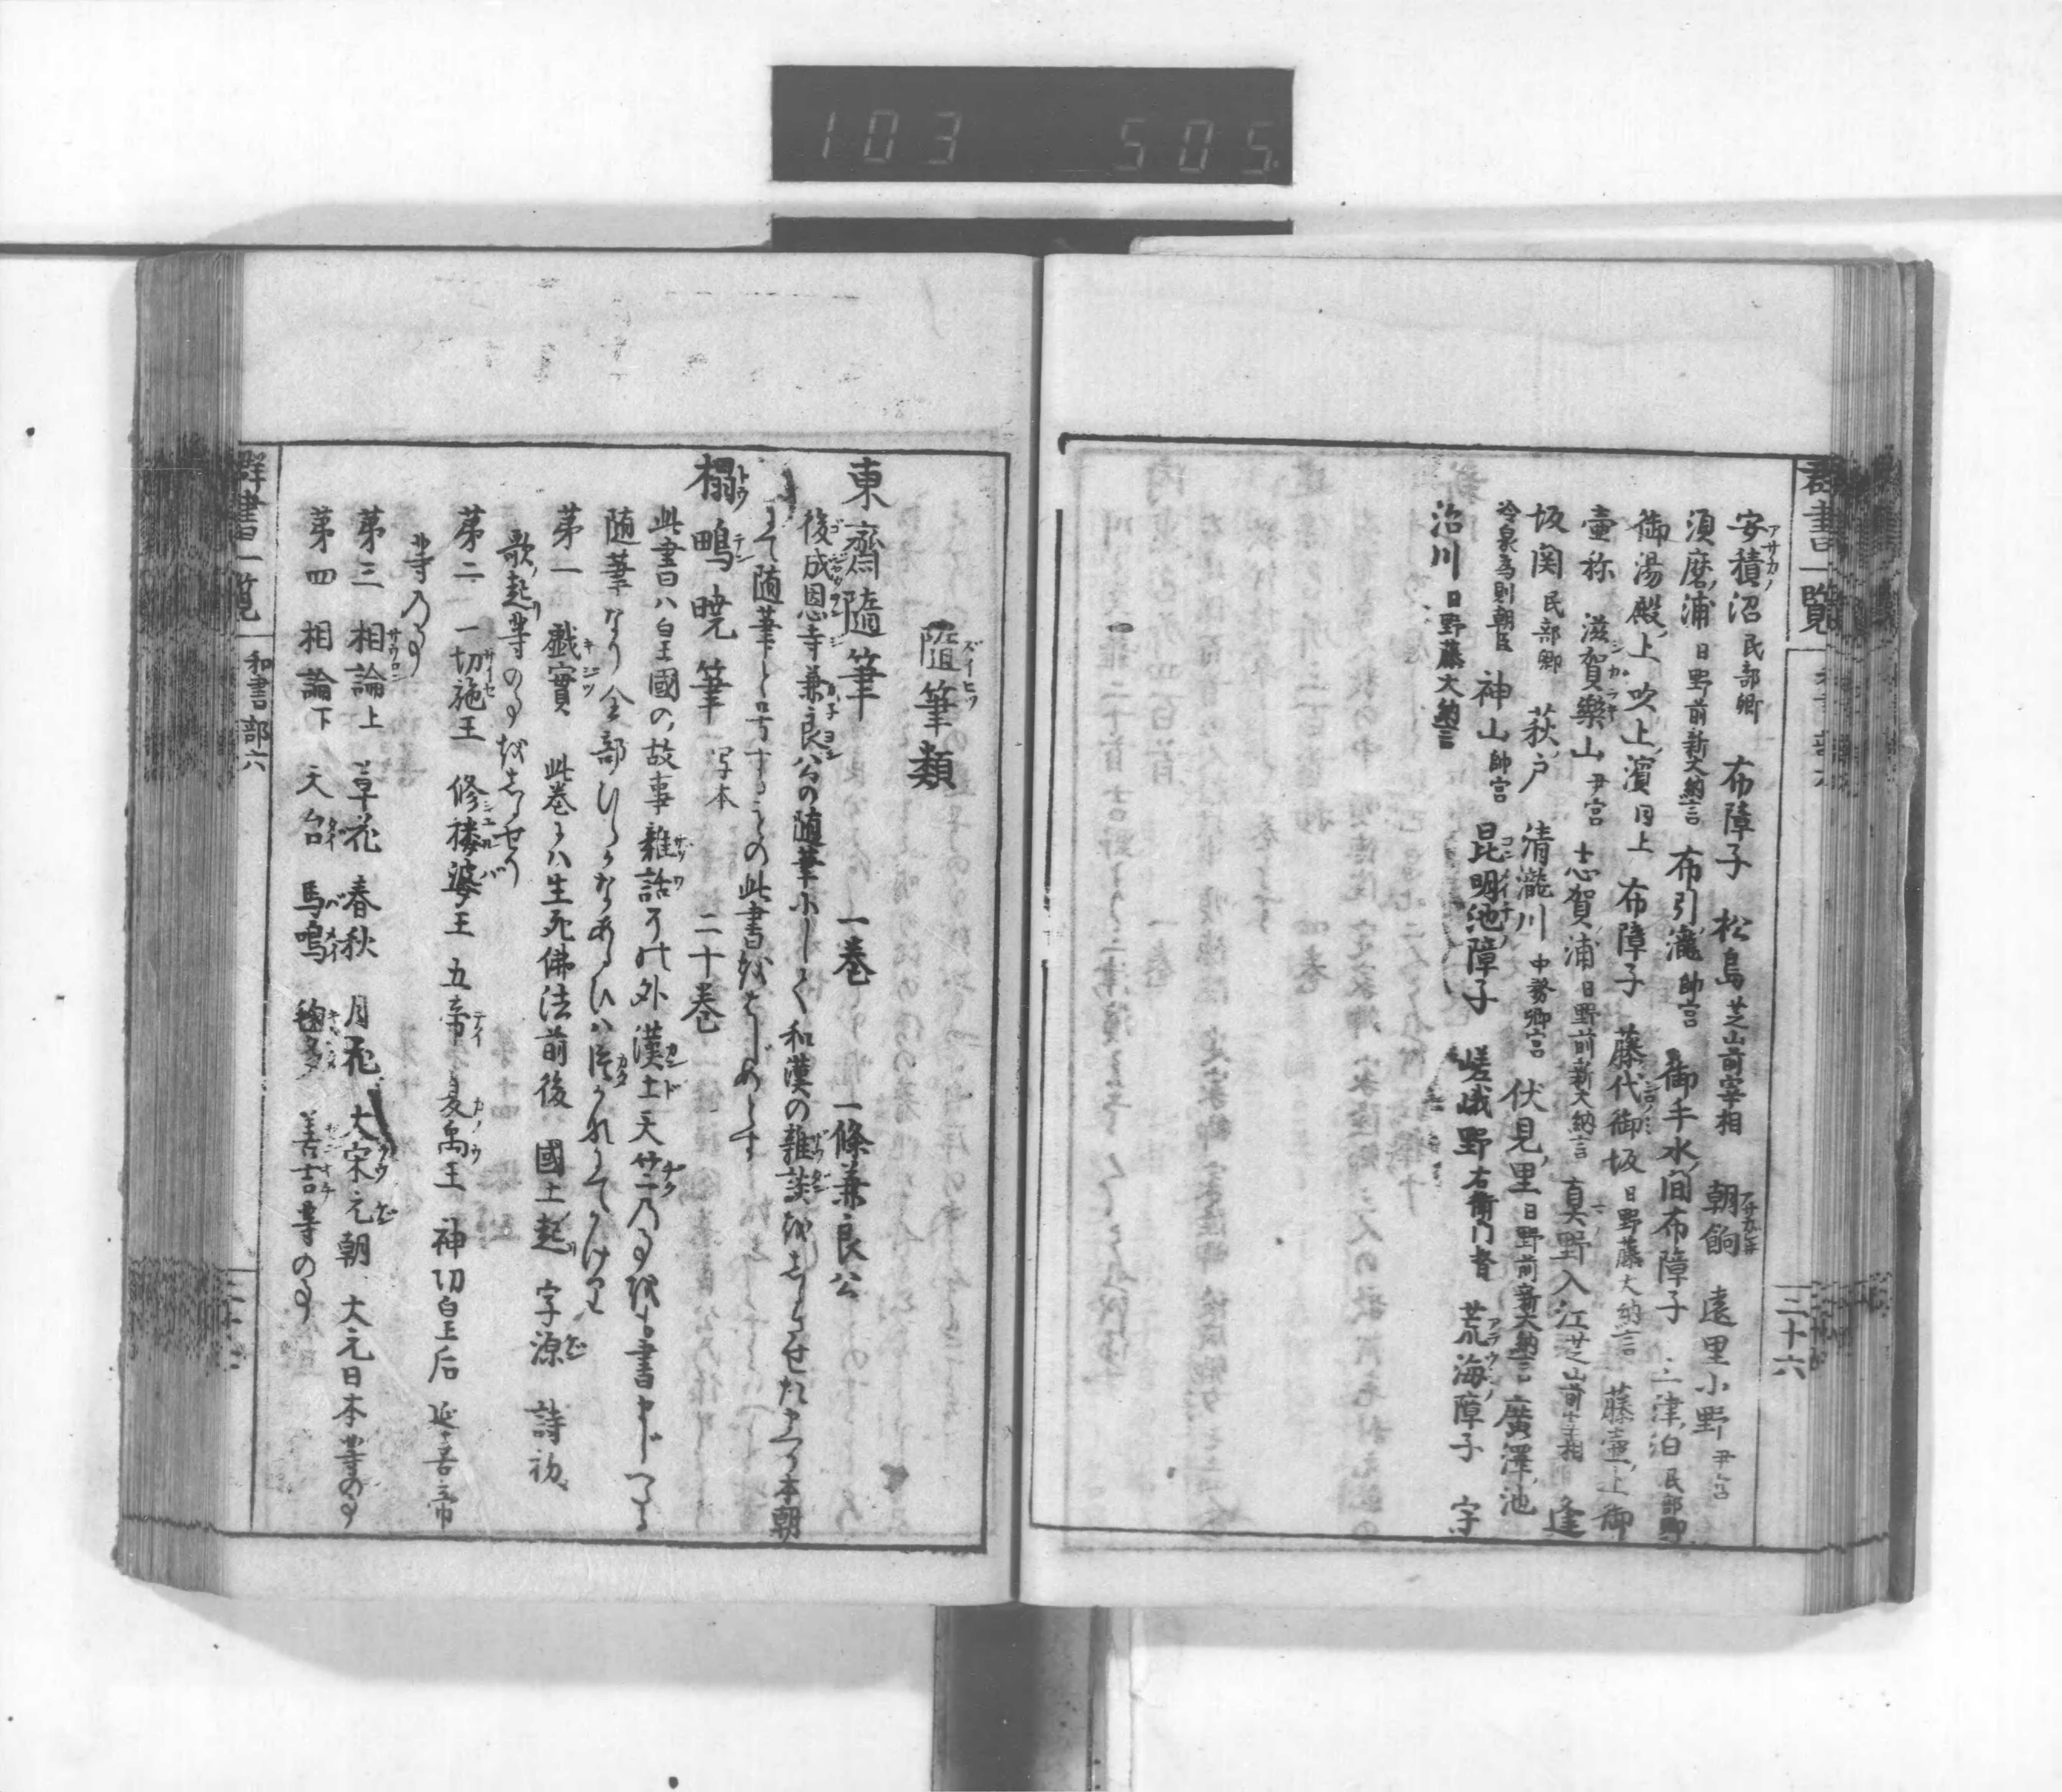 103 505
群書一覧
三十六
安積沼 民部卿 布障子 松島 芝山前宰相 朝餉 遠里小野 尹宮
須磨浦 日野前新大納言 布引瀧 帥宮 御手水間布障子 三津泊 民部卿
御湯殿上 吹上濱 同上 布障子 藤代御坂 日野藤大納言 藤壺上御
壷祢 滋賀樂山 尹宮 志賀浦 日野前新大納言 真野入江 芝山前宰相 逢
坂関 民部卿 萩戸 清瀧川 中務卿宮 伏見里 日野前新大納言 廣澤池
冷泉為則朝臣 神山 帥宮 昆明池障子 嵯峨野 右衛門督 荒海障子 宇
治川 日野藤大納言
隨筆類
東齋隨筆 一巻 一條兼良公
後成恩寺兼良公の随筆にして和漢の雜談をしるさせたまへり本朝
にて随筆と号するもの此書をはじめとす
榻鴫暁筆 写本 二十巻
此書ハ皇國の故事雜話その外漢土天竺乃事をも書まじへたる
随筆なり全部ひらかなあるひハ片かなにてかけり
第一 戲實 此巻にハ生死佛法前後 國土起 字源 詩初
歌起等の事をしるせり
第二 一切施王 修楼婆王 五帝 夏禹王 神功皇后 延喜帝
等乃事
第三 相論上 草花 春秋 月花 大宋元朝 大元日本等の事
第四 相論下 天台 馬鳴 毱多 善吉等の事
群書一覧 和書部六